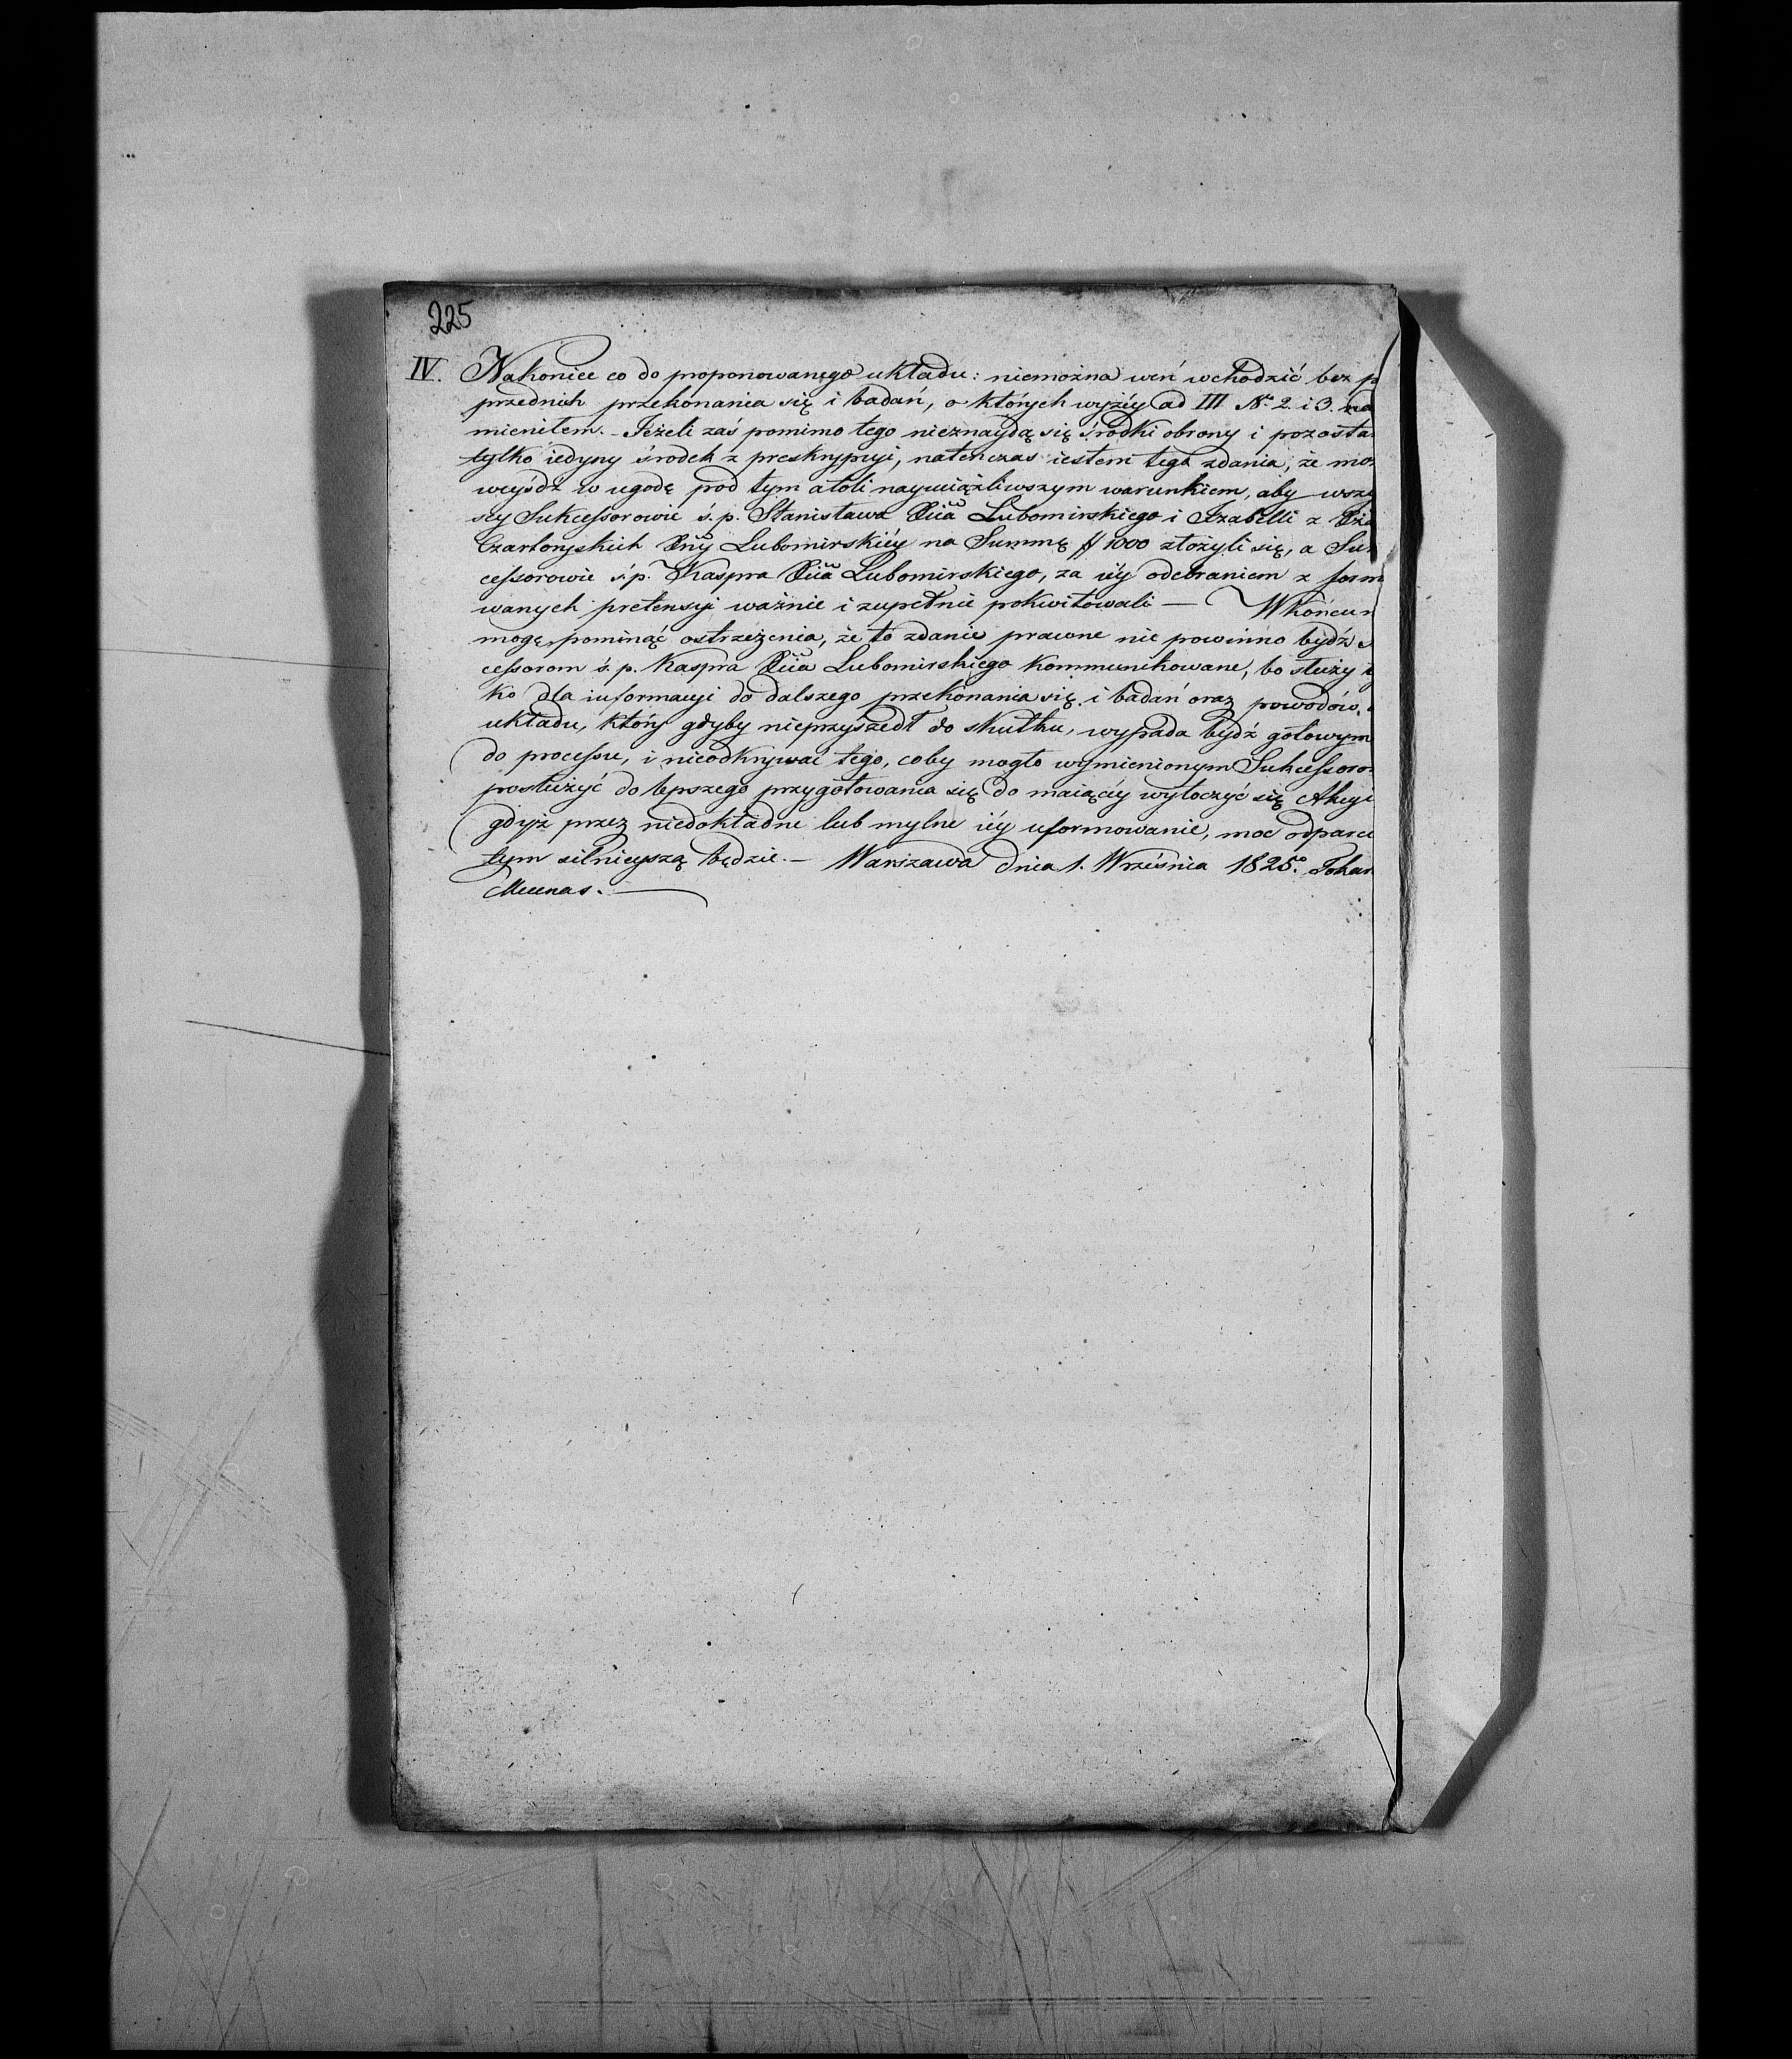 225
IV. Nakoniec co do proponowanego układu: niemożna weń wchodzić bez p
przednich przekonania się i badań, o których wyżéy ad III Nr. 2. i 3. na
mieniłem. - Jeżeli zaś pomimo tego nieznaydą się środki obrony i pozosta
tylko iedyny środek z preskrypcyi, natenczas iestem tego zdania, że mo
weyśdź w ugodę pod tym atoli nayuciążliwszym warunkiem, aby wszy
scy Sukcessorowie ś. p. Stanisława Xcia Lubomirskiego i Izabelli z Xżą
Czartoryskich Xny Lubomirskiéy na Summę # 1000 złożyli się, a Suk
cessorowie ś. p. Kaspra Xcia Lubomirskiego, za iéy odebraniem z form
wanych pretensyi ważnie i zupełnie pokwitowali — W końcu n
mogę pominąć ostrzeżenia, że to zdanie prawne nie powinno bydź s
cessorom ś. p. Kaspra Xcia Lubomirskiego kommunikowane, bo służy t
ko dla informacyi do dalszego przekonania się i badań oraz powodów
układu, który gdyby nieprzyszedł do skutku, wypada bydź gotowym
do processu, i nieodkrywać tego, coby mogło wymienionym Sukcessoro
posłużyć do lepszego przygotowania się do maiącéy wytoczyć się Akcyi
gdyż przez niedokładne lub mylne iéy uformowanie, moc odparcia
tym silnieyszą będzie. — Warszawa dnia 1. Września 1825.o Tokar
Mecenas. —